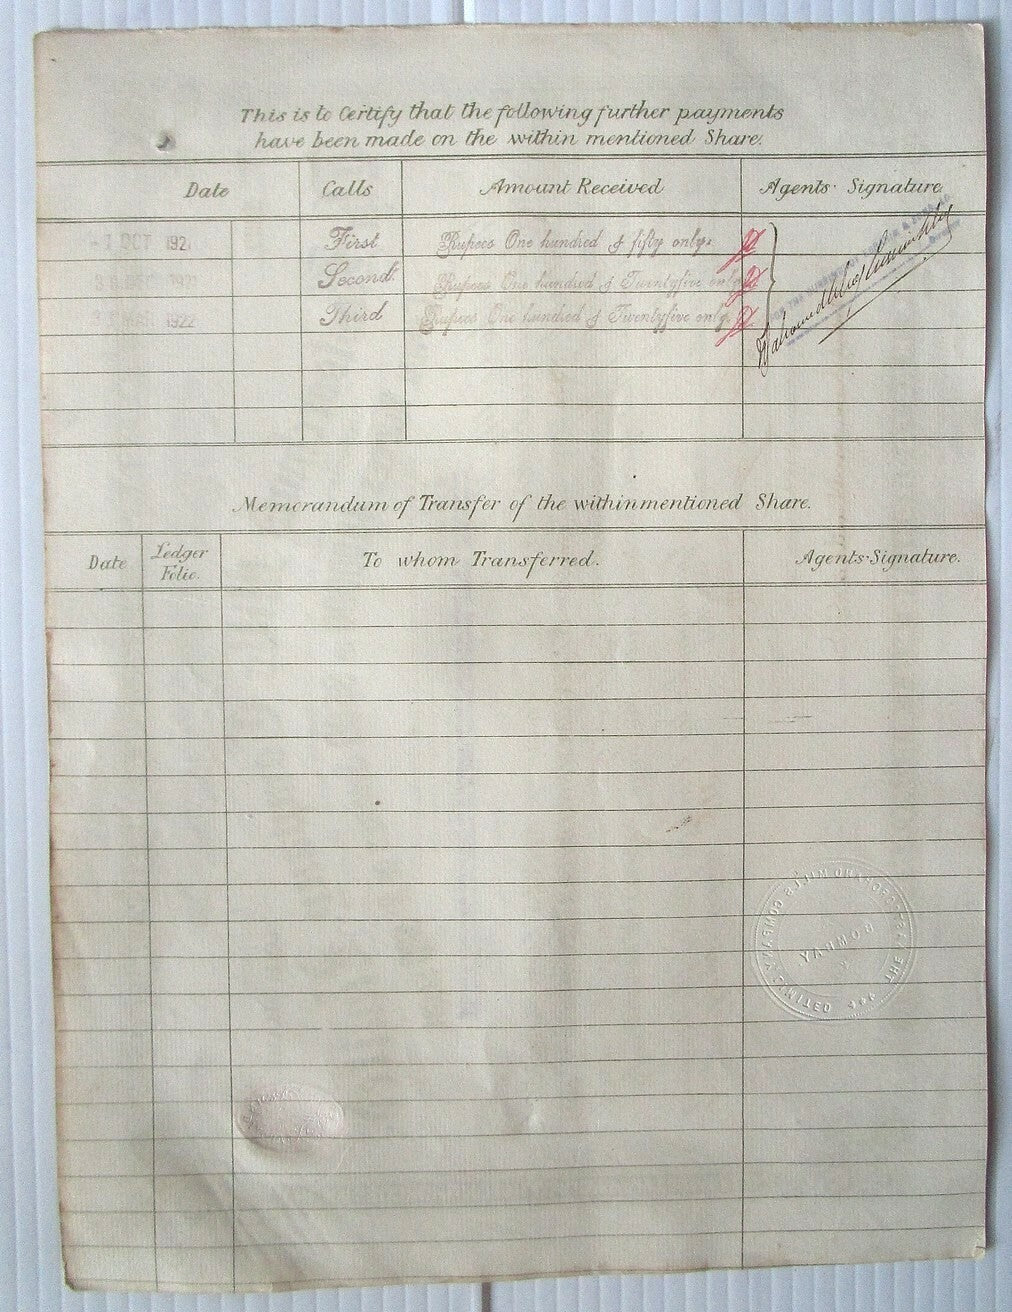 This is to Certify that the following further payments
have been made on the within mentioned Share.
Date Calls Amount Received Agents Signature
-1 OCT 192 First Rupees One hundred & fifty only.
Second Rupees One hundred & Twentyfive only
1922 Third Rupees One hundred & Twentyfive only.
Memorandum of Transfer of the withinmentioned Share.
Date Ledger Folio. To whom Transferred. Agents Signature.
THE MILLS COMPANY LIMITED
BOMBAY